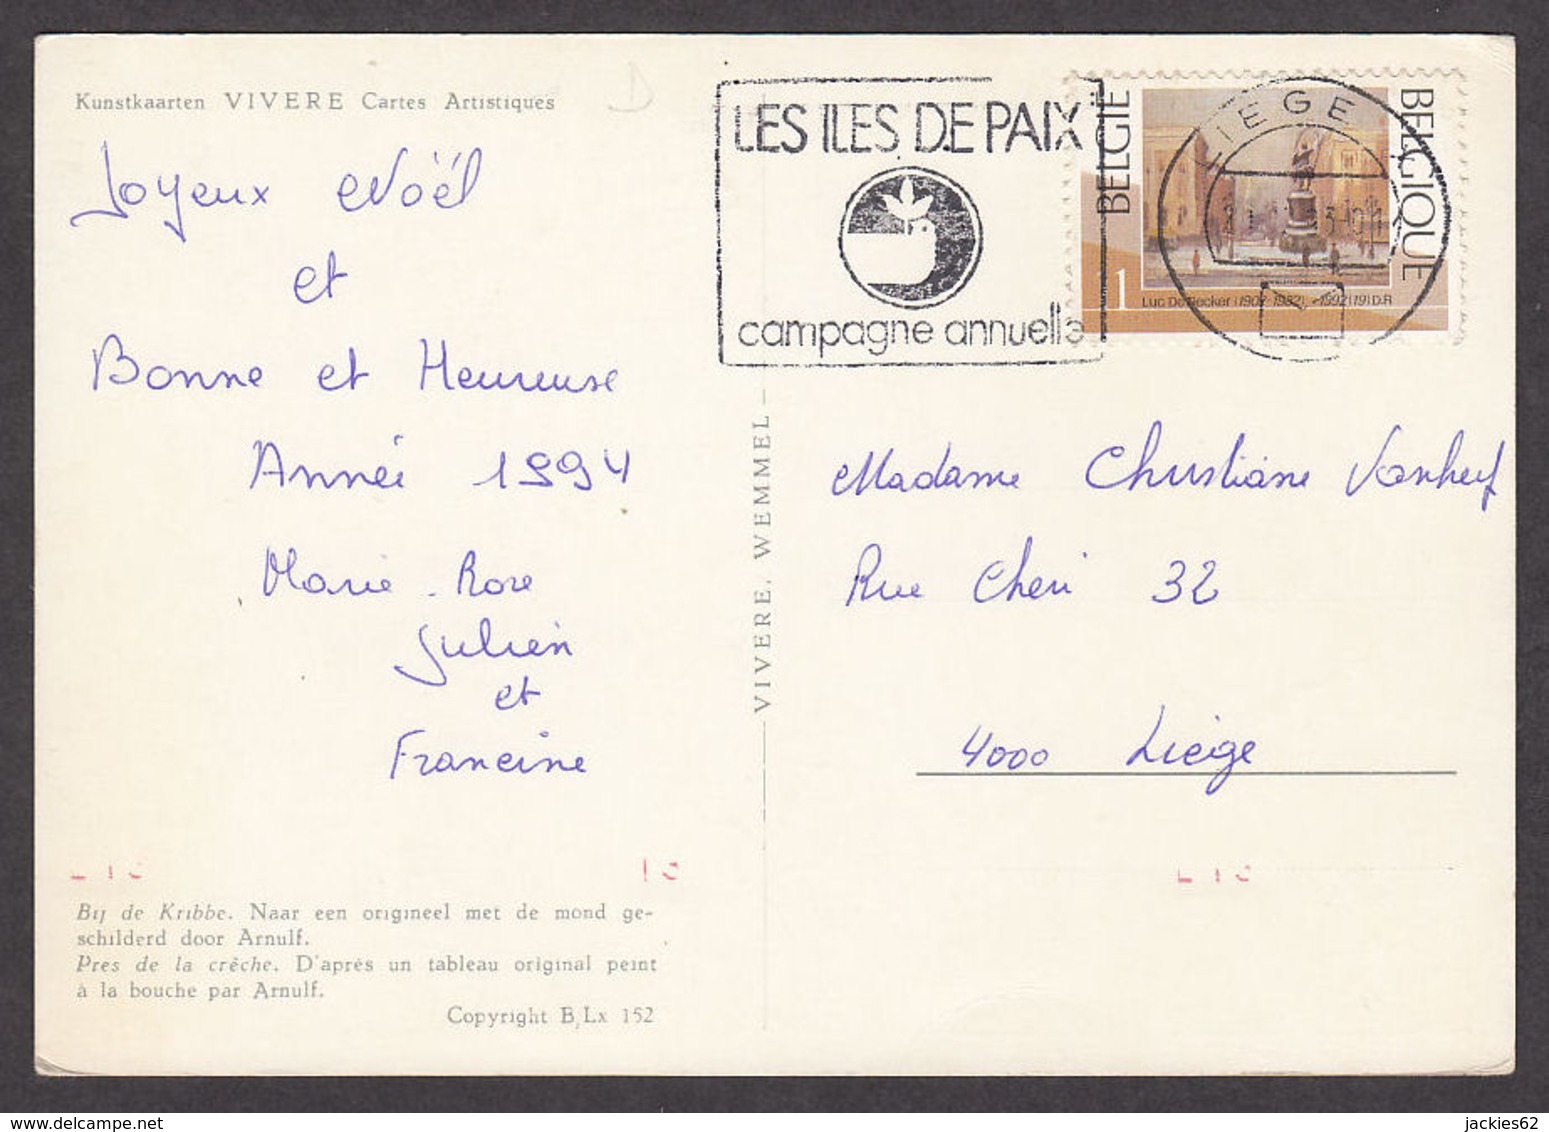 Kunstkaarten VIVERE Cartes Artistiques
Joyeux Noël
et
Bonne et Heureuse
Année 1994
Marie-Rose
Julien
et
Francine
Bij de Kribbe. Naar een origineel met de mond ge-
schilderd door Arnulf.
Pres de la crêche. D'après un tableau original peint
à la bouche par Arnulf.
Copyright B/Lx 152
VIVERE, WEMMEL
LES ILES DE PAIX
campagne annuelle
BELGIE
BELGIQUE
LIEGE
1
Luc De Decker (1907-1982) 1992(19)D.R
Madame Christiane
Rue Cheri 32
4000 Liège
jackies62